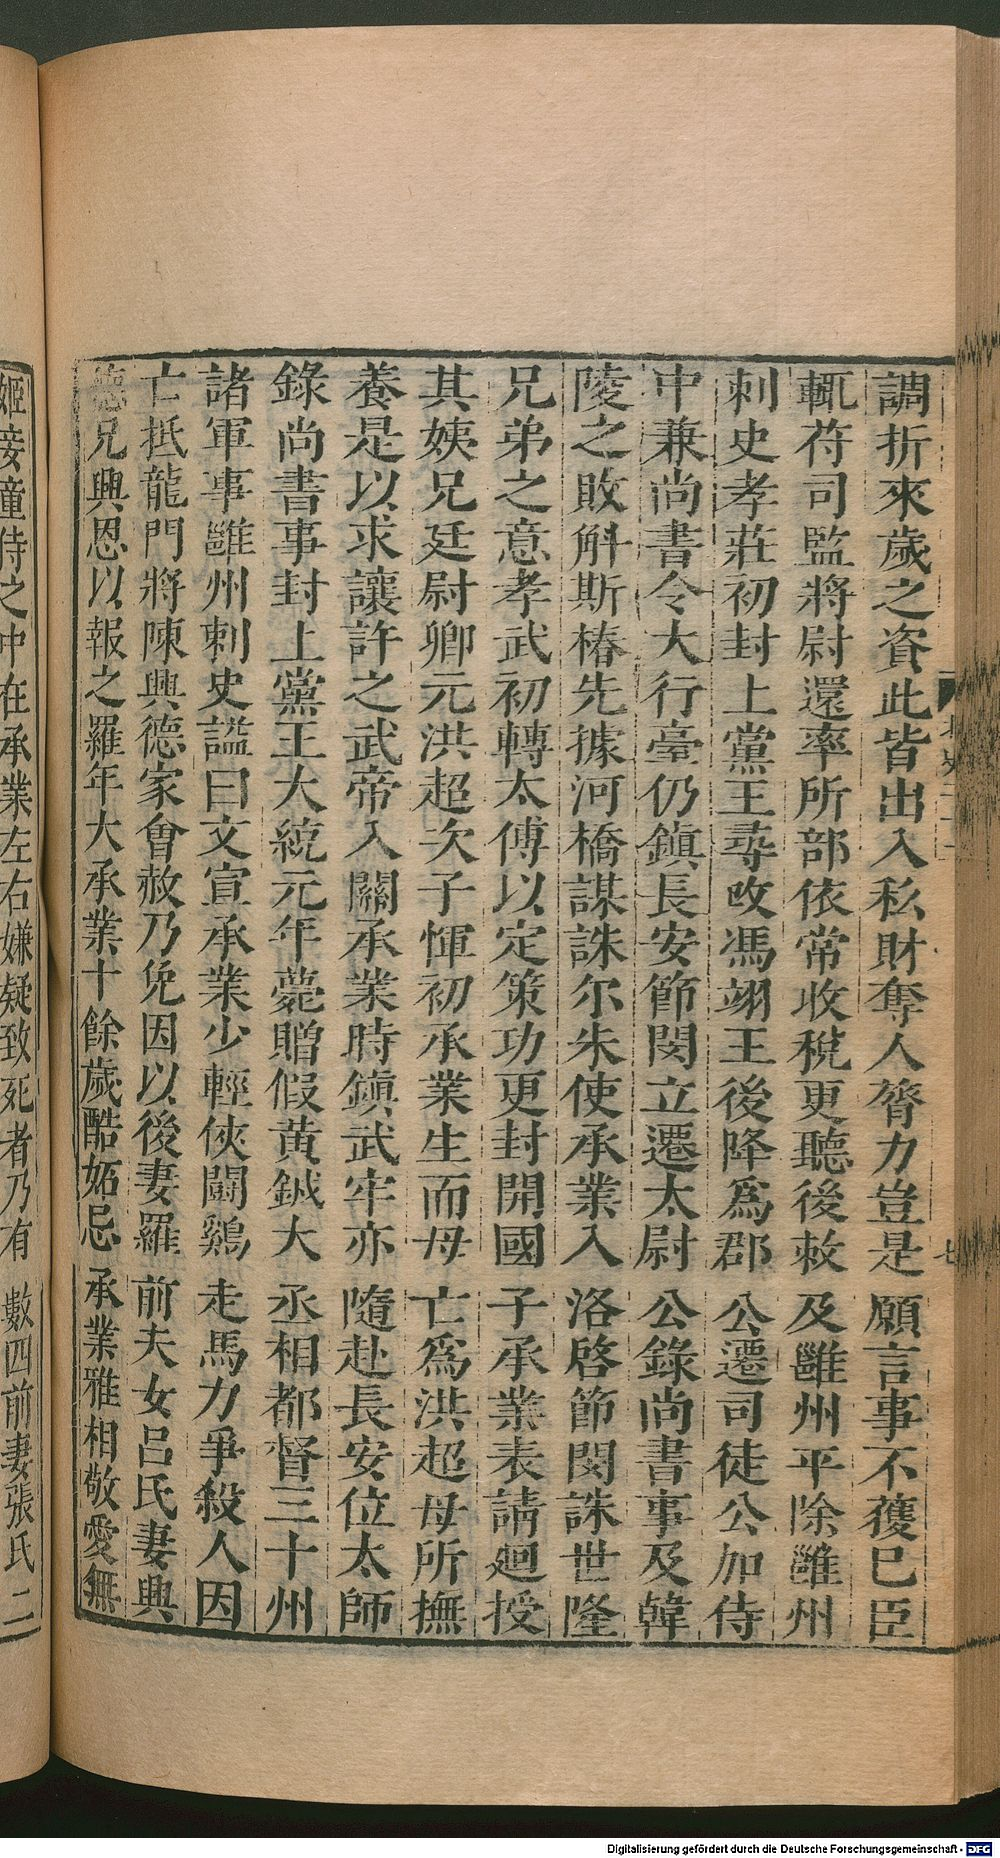 調折來歲之資此皆出入私財奪人膂力豈是願言事不獲已臣
輒符司監將尉還率所部依常收稅更聽後敕及雝州平除雝州
刺史孝莊初封上黨王尋改馮翊王後降爲郡公遷司徒公加侍
中兼尚書令大行臺仍鎮長安節閔立遷太尉公錄尚書事及韓
陵之敗斛斯椿先據河橋謀誅尒朱使承業入洛啓節閔誅世隆
兄弟之意孝武初轉太傅以定策功更封開國子承業表請廻授
其姨兄廷尉卿元洪超次子惲初承業生而母亡爲洪超母所撫
養是以求讓許之武帝入關承業時鎮武牢亦隨赴長安位太師
錄尚書事封上黨王大統元年薨贈假黃鉞大丞相都督三十州
諸軍事雝州刺史謚曰文宣承業少輕俠鬪鷄走馬力爭殺人因
亡抵龍門將陳興德家會赦乃免因以後妻羅前夫女呂氏妻興
德兄興恩以報之羅年大承業十餘歲酷妬忌承業雅相敬愛無
姬妾童侍之中在承業左右嫌疑致死者乃有數四前妻張氏二
Digitalisierung gefördert durch die Deutsche Forschungsgemeinschaft - DFG